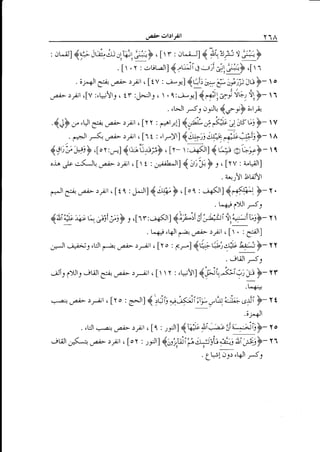 ٢٦٨ انفرادات حفص
﴿يَا بُنَيَّ لا تُشْرِكْ بِاللَّهِ﴾ [لقمان: ١٣] ، ﴿يَا بُنَيَّ إِنَّهَا إِن تَكُ مِثْقَالَ حَبَّةٍ﴾ [لقمان :
١٦] ، ﴿يَا بُنَيَّ إِنِّي أَرَىٰ فِي الْمَنَامِ﴾ [الصافات : ١٠٢] .
١٥- ﴿قَالَ تَزْرَعُونَ سَبْعَ سِنِينَ دَأَبًا﴾ [يوسف : ٤٧] ، انفرد حفص بفتح الهمزة .
١٦- ﴿إِلَّا رِجَالًا نُّوحِي إِلَيْهِم﴾ [يوسف: ١٠٩ ، النحل: ٤٣ ، والأنبياء: ٧] ، انفرد حفص
بقراءة ﴿نُوحِي﴾ بالنون وكسر الحاء .
١٧- ﴿وَمَا كَانَ لِيَ عَلَيْكُم مِّن سُلْطَانٍ﴾ [إبراهيم : ٢٢] ، انفرد حفص بفتح الياء من ﴿لِيَ﴾ .
١٨- ﴿وَأَجْلِبْ عَلَيْهِم بِخَيْلِكَ وَرَجِلِكَ﴾ [الإسراء : ٦٤] ، انفرد حفص بكسر الجيم .
١٩- ﴿عِوَجَا قَيِّمًا﴾ [الكهف: ١ -٢] ، ﴿مِن مَّرْقَدِنَا هَذَا﴾ [يس: ٥٢] ، ﴿وَقِيلَ مَنْ رَاقٍ﴾
[القيامة : ٢٧] ، ﴿كَلَّا بَلْ رَانَ﴾ [المطففين : ١٤] ، انفرد حفص بالسكت على هذه
الألفاظ الأربعة .
٢٠- ﴿لِمَهْلِكِهِم﴾ [الكهف : ٥٩] ، ﴿مَهْلِكَ أَهْلِهِ﴾ [النمل : ٤٩] ، انفرد حفص بفتح الميم
وكسر اللام فيهما .
٢١- ﴿وَمَا أَنسَانِيهُ إِلَّا الشَّيْطَانُ أَنْ أَذْكُرَهُ﴾ [الكهف:٦٣]، ﴿وَمَنْ أَوْفَىٰ بِمَا عَاهَدَ عَلَيْهُ اللَّهَ﴾
[الفتح : ١٠] ، انفرد حفص بضم الهاء فيهما .
٢٢- ﴿تُسَاقِطْ عَلَيْكِ رُطَبًا جَنِيًّا﴾ [مريم : ٢٥] ، انفرد حفص بضم التاء، وتخفيف السين
وكسر القاف .
٢٣- ﴿قَالَ رَبِّ احْكُم بِالْحَقِّ﴾ [الأنبياء : ١١٢] ، انفرد حفص بفتح القاف واللام وألف
بينهما .
٢٤- ﴿الَّذِي جَعَلْنَاهُ لِلنَّاسِ سَوَاءً الْعَاكِفُ فِيهِ وَالْبَادِ﴾ [الحج : ٢٥] ، انفرد حفص بنصب
الهمزة .
٢٥- ﴿وَالْخَامِسَةَ أَنَّ غَضَبَ اللَّهِ عَلَيْهَا﴾ [النور : ٩] ، انفرد حفص بنصب التاء .
٢٦- ﴿وَيَخْشَ اللَّهَ وَيَتَّقْهِ فَأُولَئِكَ هُمُ الْفَائِزُونَ﴾ [النور : ٥٢] ، انفرد حفص بتسكين القاف
وكسر الهاء دون إشباع .